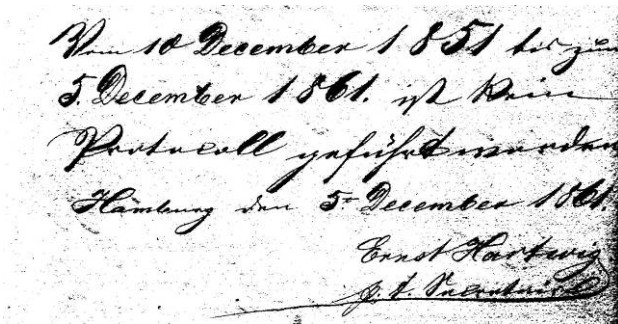 Vom 10 December 1851 bis zum
5. December 1861. ist Kein
Protocoll geführt worden
Hamburg den 5t December 1861.
Ernst Hartwig
p. t. Secretair